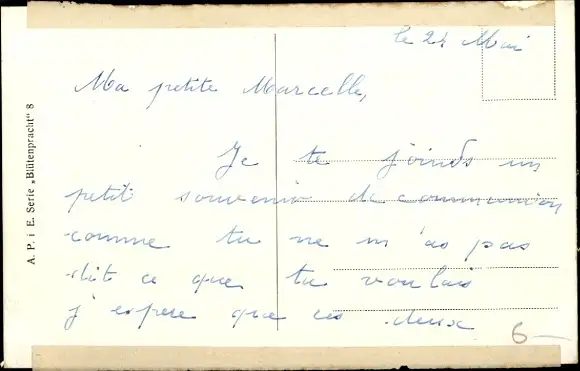 le 24 Mai
Ma petite Marcelle,
Je te joinds un
petit souvenir de communion
comme tu ne m'as pas
dit ce que tu voulais
j'espere que ces deux
6 —
A. P. i E. Serie „Blütenpracht" 8